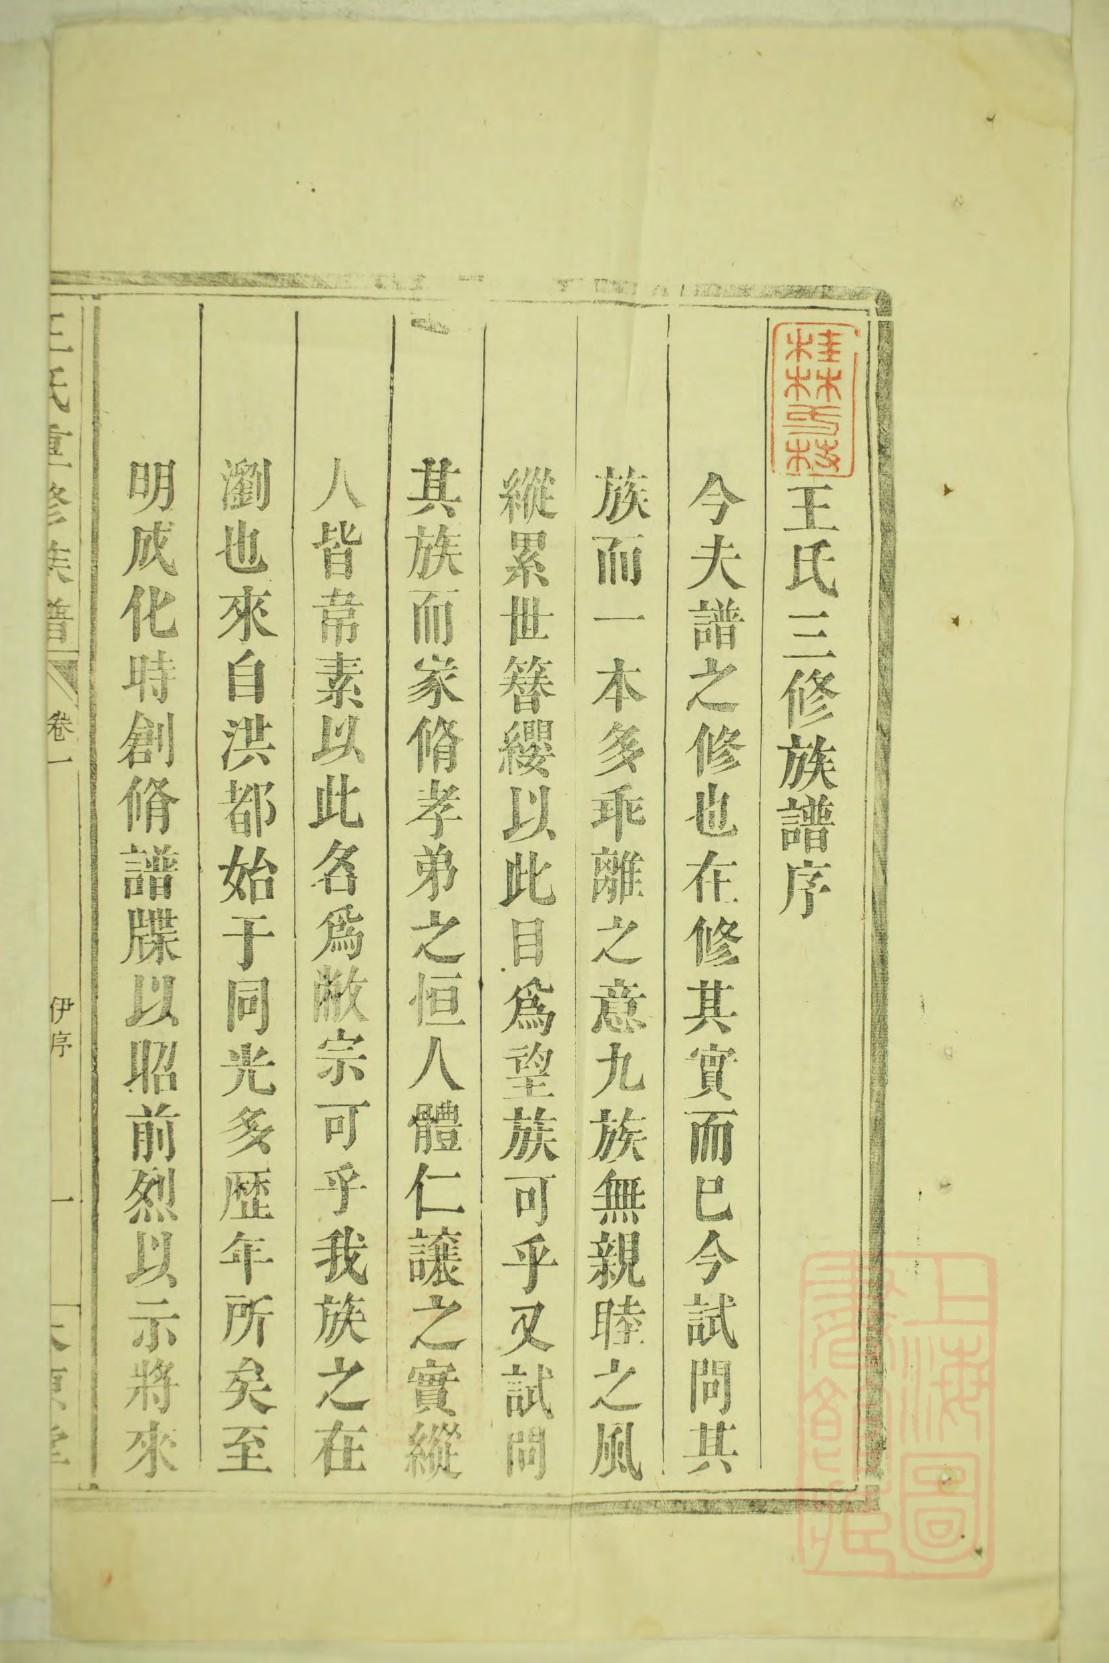 王氏三修族譜序
今夫譜之修也在修其實而已今試問其
族而一本多乖離之意九族無親睦之風
縱累世簪纓以此目爲望族可乎又試問
其族而家脩孝弟之恒人體仁讓之實縱
人皆韋素以此名爲敝宗可乎我族之在
瀏也來自洪都始于同光多歷年所矣至
明成化時創脩譜牒以昭前烈以示將來
王氏重修族譜 卷一 伊序 一
上海圖書館藏